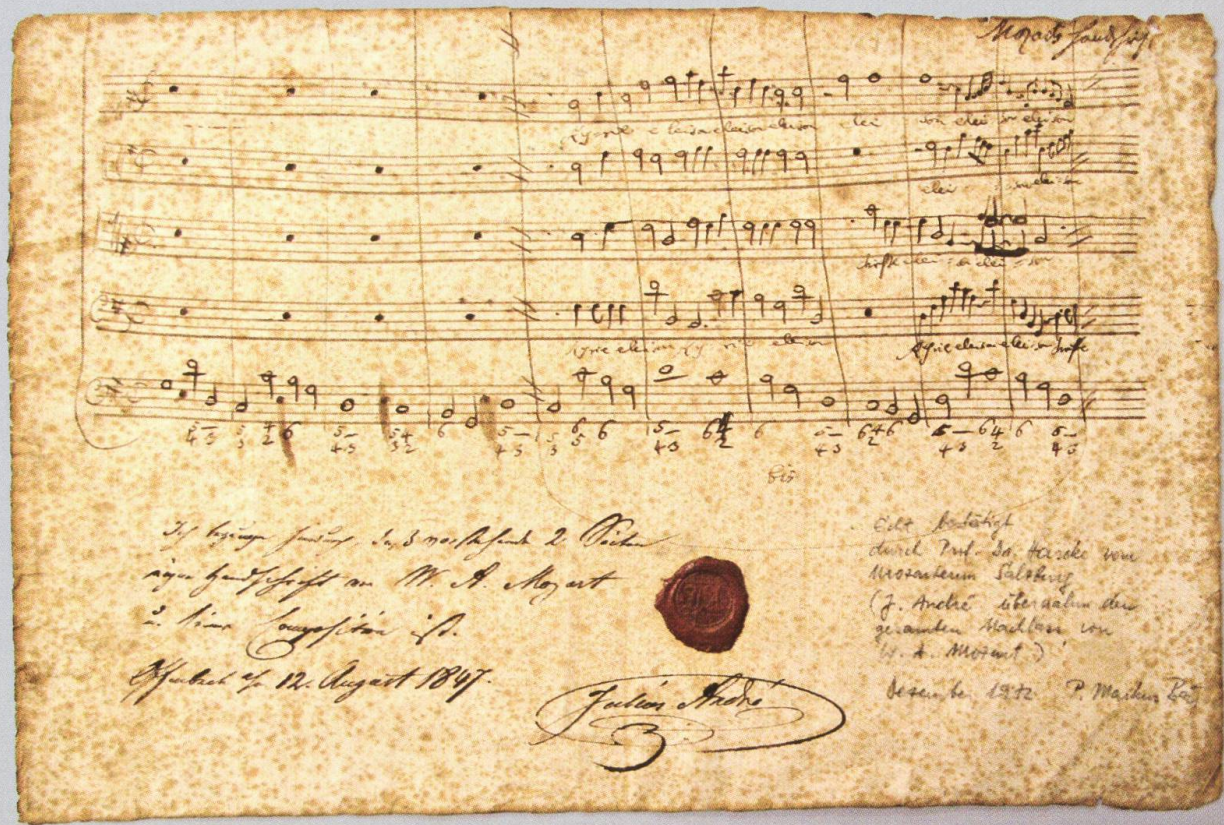 Mozarts Handschrift
Kyrie eleison eleison eleison elei son elei son eleison
elei son eleison
Christe elei son elei son
Kyrie eleison Ky rie eleison Kyrie eleison eleison Christe
bis
Ich bezeuge hiedurch, daß vorstehende 2 Seiten
eigne Handschrift von W. A. Mozart
u. seine Composition ist.
Offenbach a/m 12. August 1847.
Julius André
Echt bestätigt
durch Prof. Dr. vom
Mozarteum Salzburg
(J. André übernahm den
gesamten Nachlass von
W. A. Mozart)
Dezember 1972 P. Markus